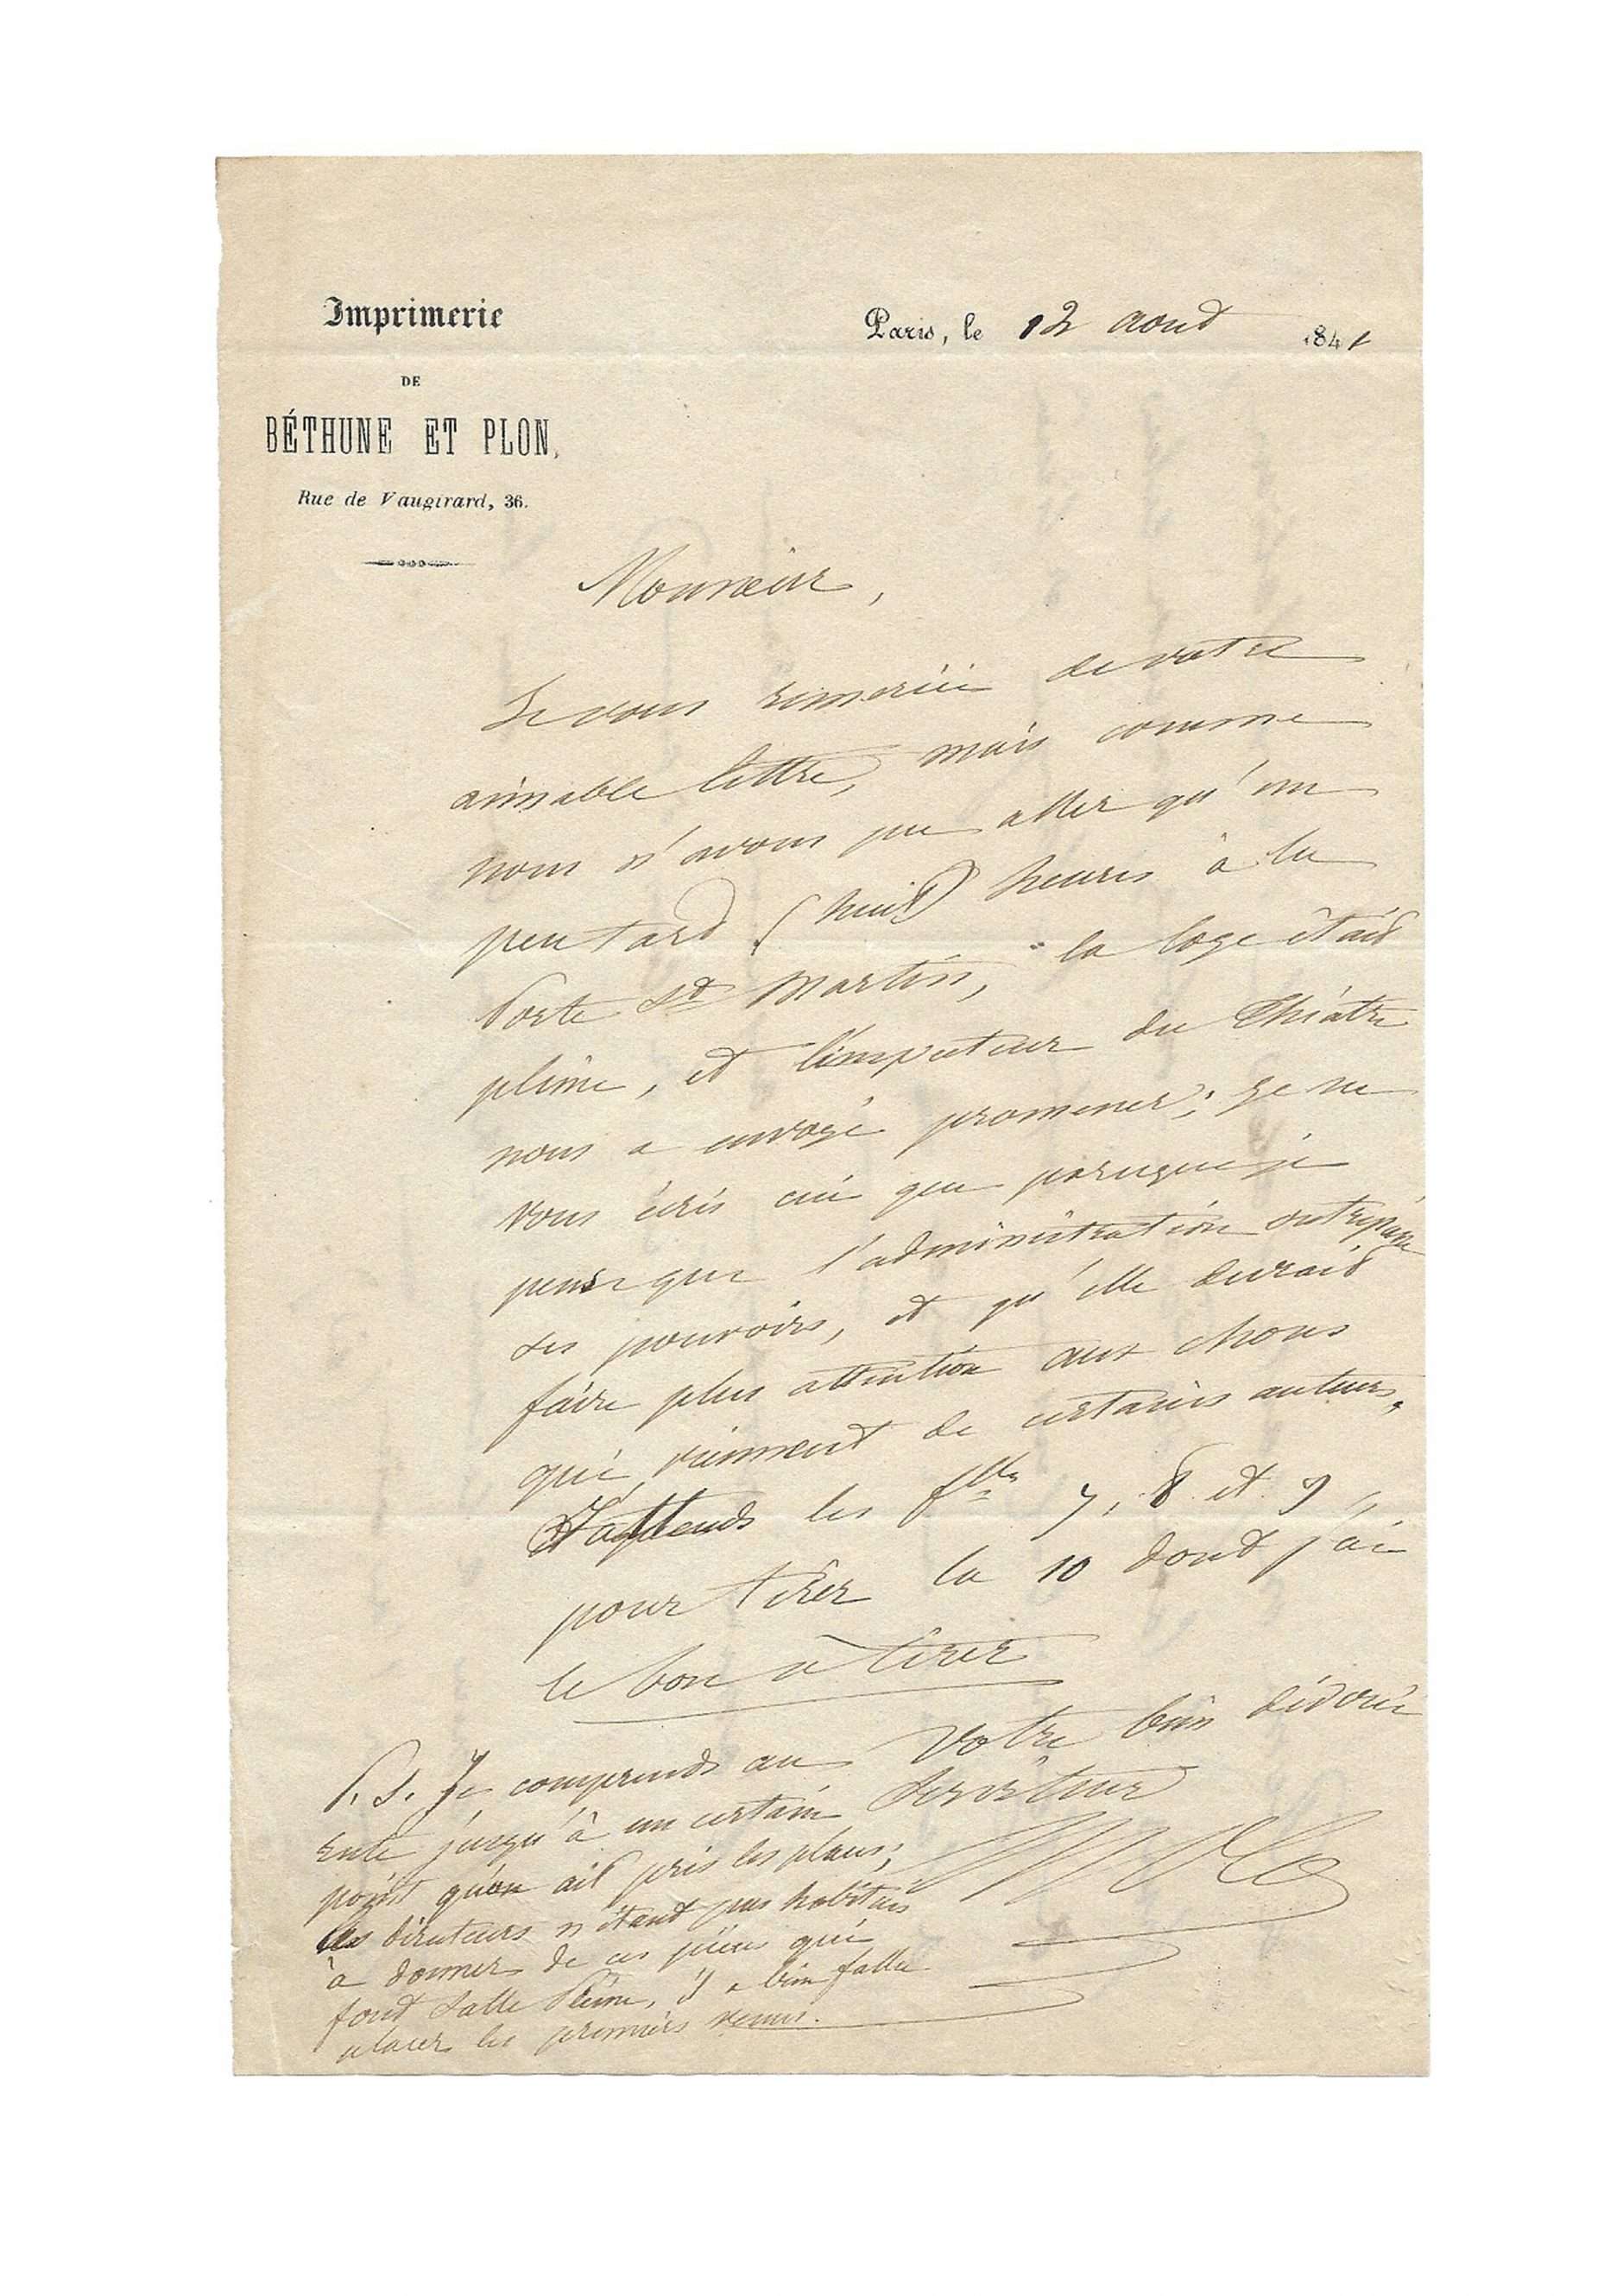 Imprimerie
DE
BÉTHUNE ET PLON,
Rue de Vaugirard, 36.
Paris, le 12 aout 1841
Monsieur,
Je vous remercie de votre
aimable lettre, mais comme
nous n'avons pu aller qu'un
peu tard (huit) heures à la
Porte St Martin, la loge était
pleine, et l'inspecteur du Théâtre
nous a envoyé promener; je ne
vous écris ceci que parceque je
pense que l'administration outrepasse
ses pouvoirs, et qu'elle devrait
faire plus attention aux choses
qui viennent de certains auteurs.
J'attends les flles 7, 8 et 9,
pour tirer la 10 dont j'ai
le bon à tirer
Votre bien dévoué
Serviteur
P.S. Je comprends au
reste jusqu'à un certain
point qu'on ait pris les places;
les directeurs n'étant pas habitués
à donner de ces pièces qui
font salle pleine, il a bien fallu
placer les premiers venus.